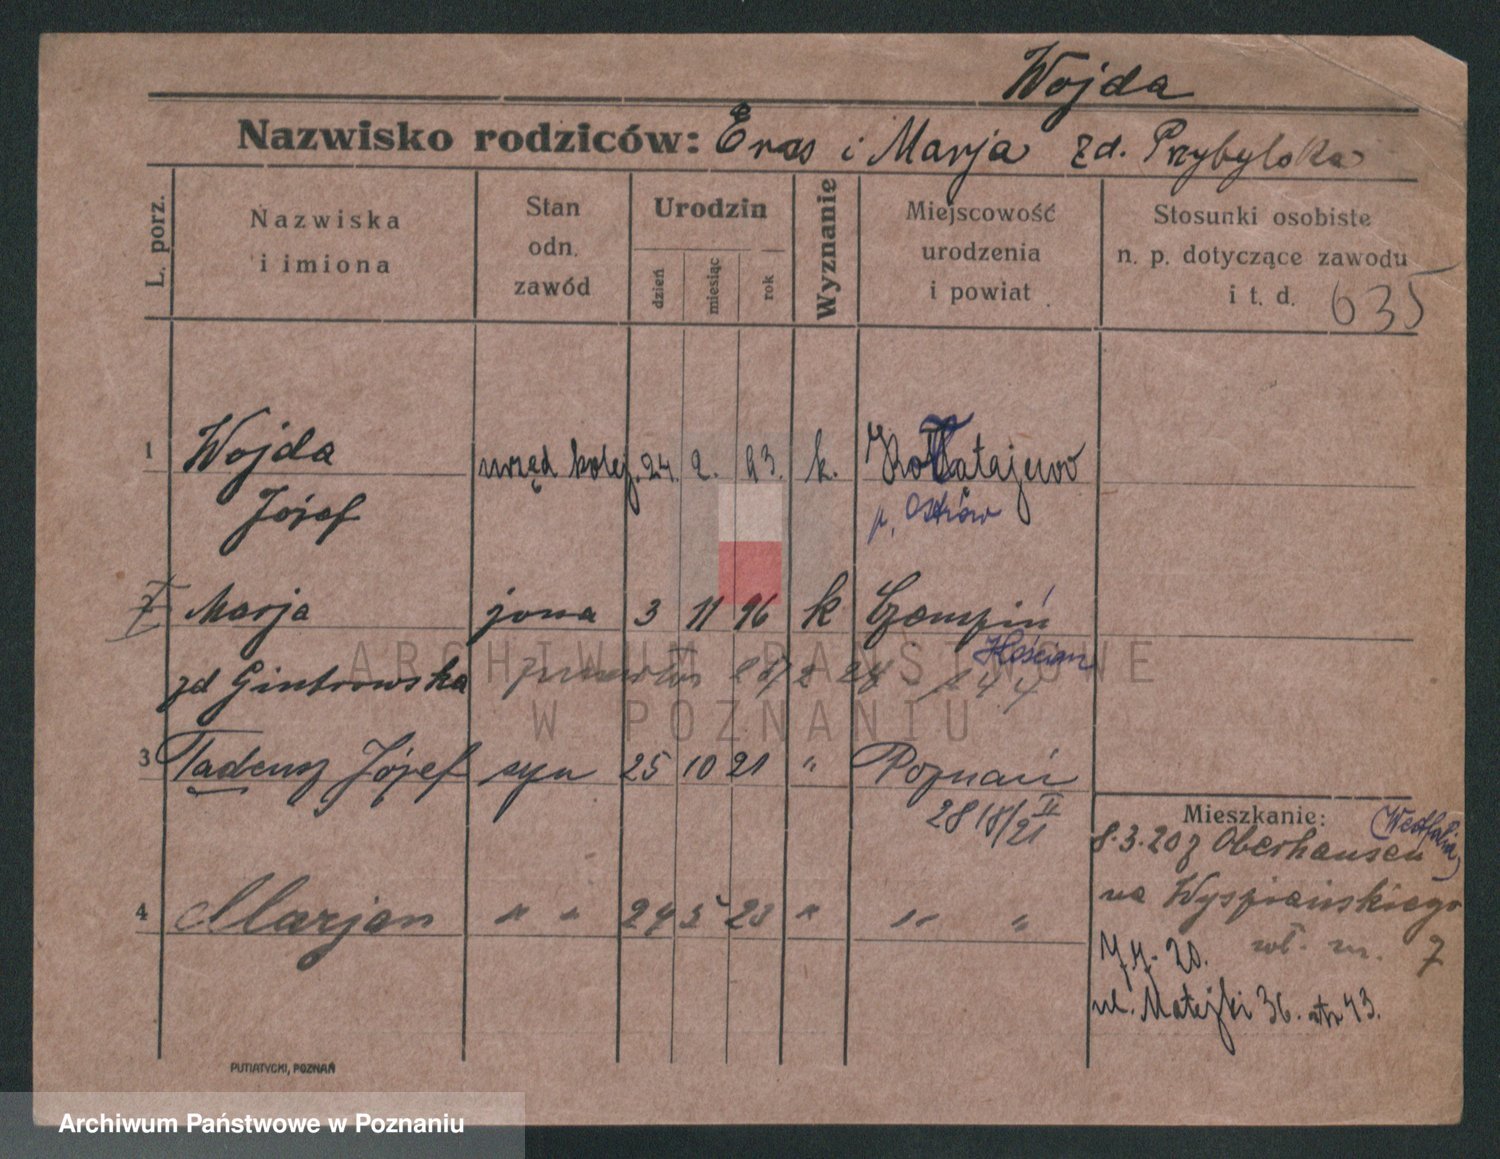 Wojda
Nazwisko rodziców: Eras i Marja zd. Przybylska
L. porz.
Nazwiska
i imiona
Stan
odn.
zawód
Urodzin
dzień
miesiąc
rok
Wyznanie
Miejscowość
urodzenia
i powiat
Stosunki osobiste
n. p. dotyczące zawodu
i t. d. 635
1 Wojda urzęd kolej. 24. 2. 93. k.
Józef p. Ostrów
Marja żona 3 11 96 k Czempiń
zd Gintrowska Kościan
3 Tadeusz Józef syn 25 10 21 " Poznań
4 Marjan " " 24 5 23 " " "
Mieszkanie: (Westfalia)
8.3.20 z Oberhausen
na Wyspiańskiego
nr. 7
20.
ul. Matejki 36. 43.
PUTIATYCKI, POZNAŃ
ARCHIWUM PAŃSTWOWE
W POZNANIU
Archiwum Państwowe w Poznaniu